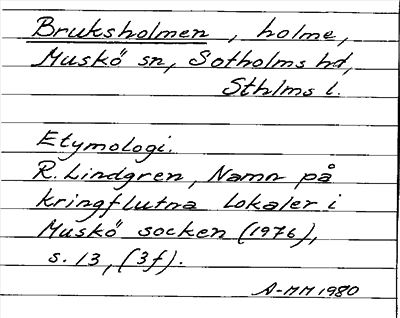 Bruksholmen, holme,
Muskö sn, Sotholms hd,
Sthlms l.
Etymologi.
R. Lindgren, Namn på
kringflutna lokaler i
Muskö socken (1976),
s. 13, (3f).
A-MM 1980